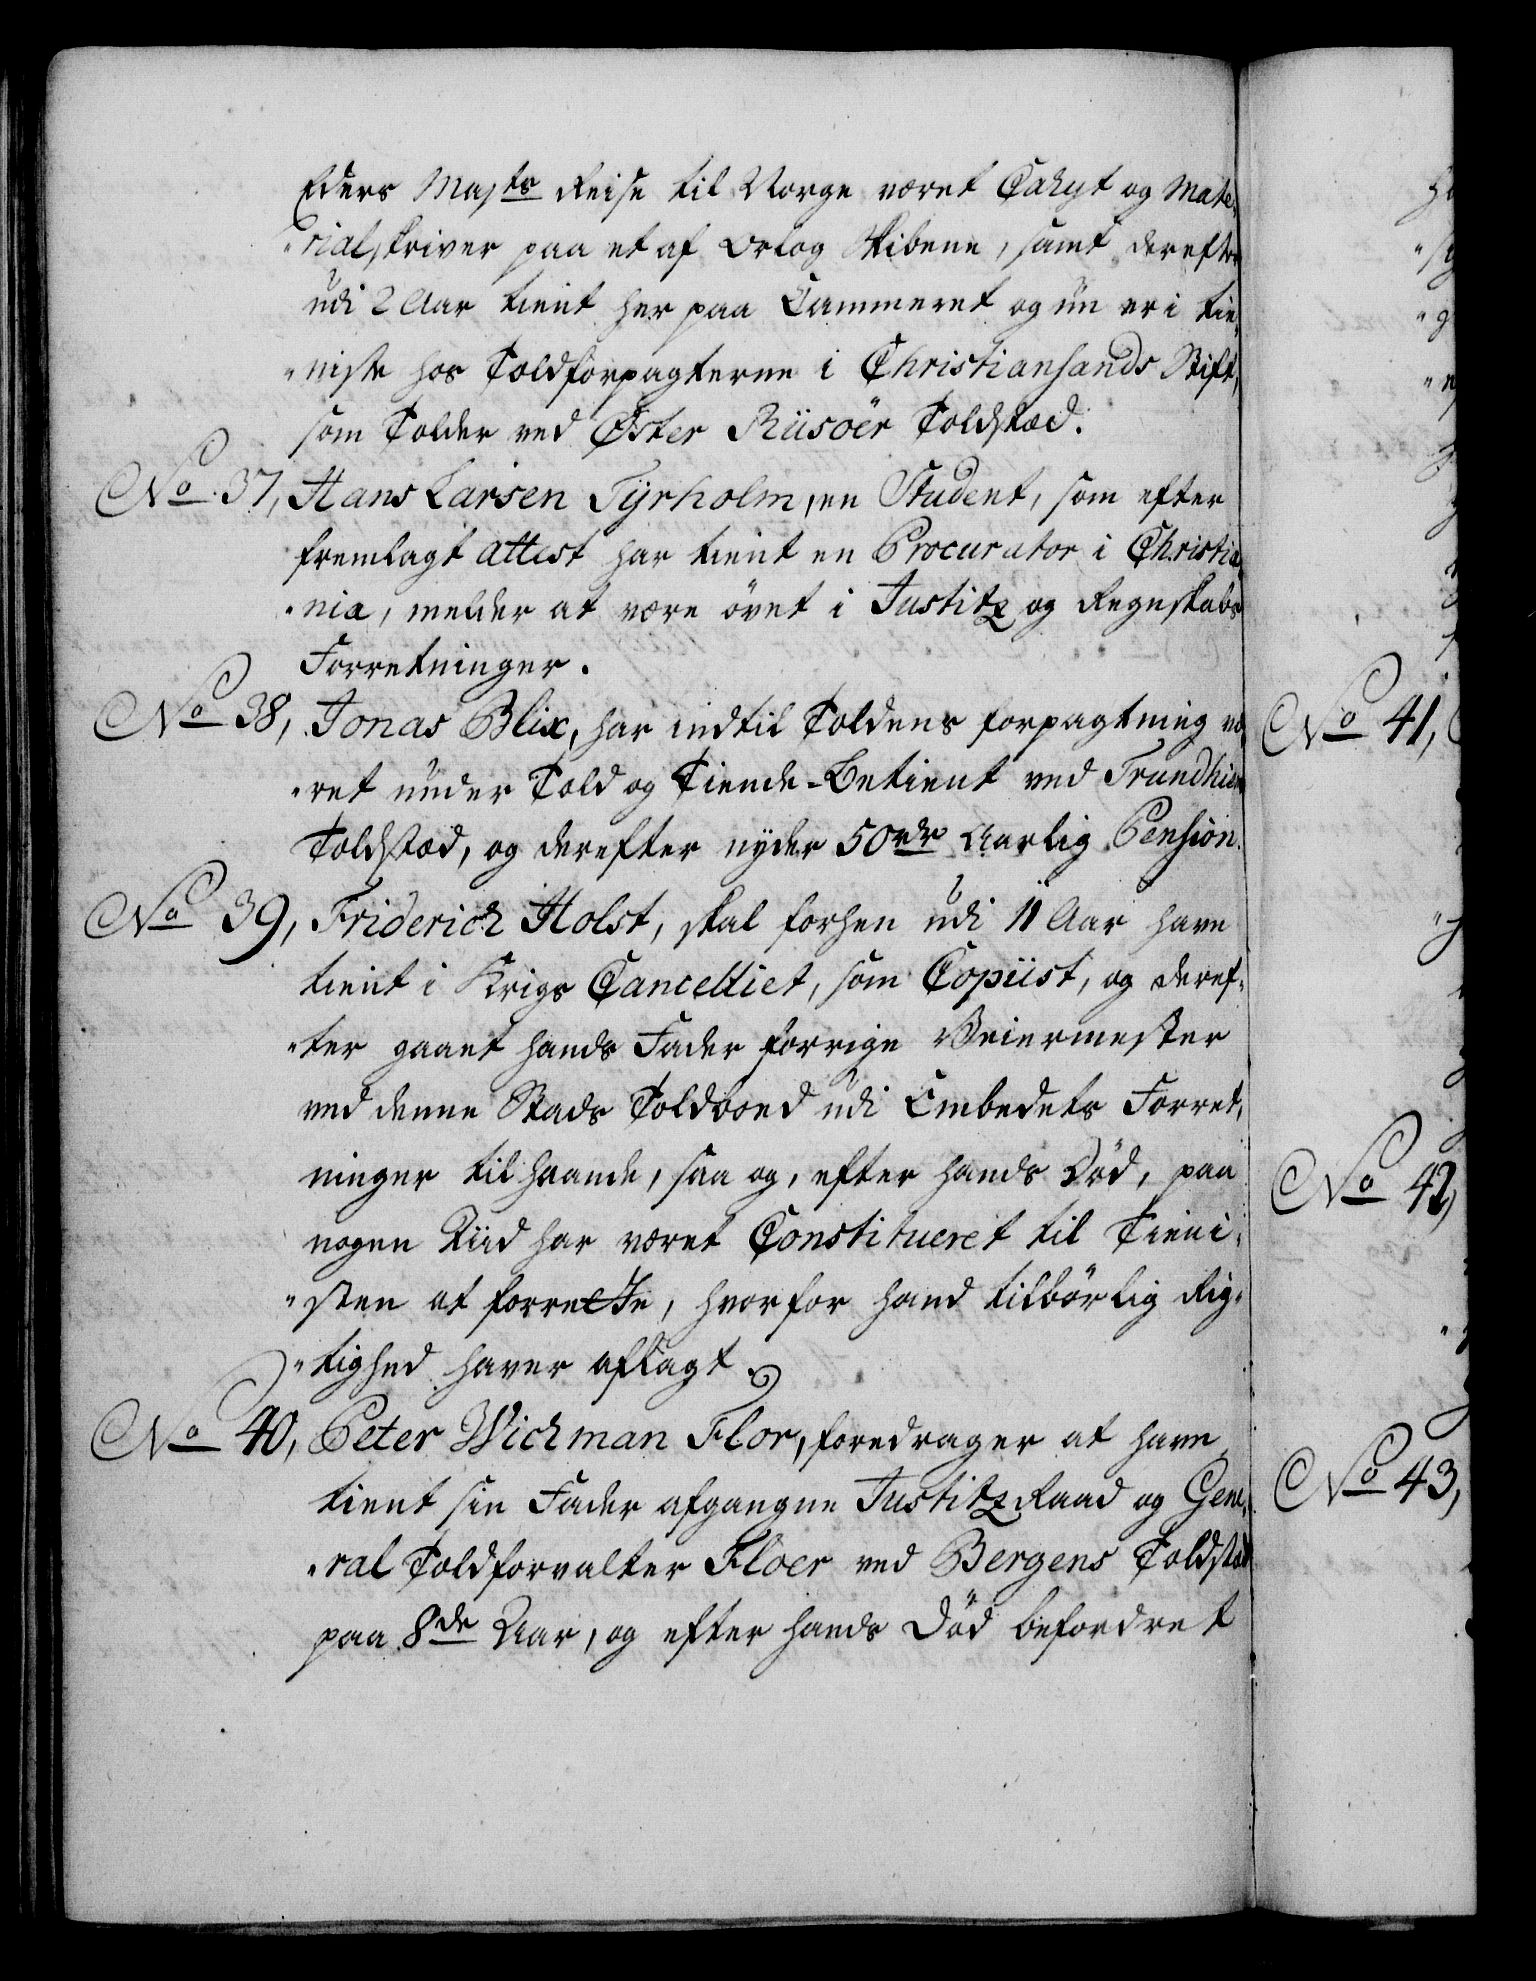 Eders Majts Reise til Norge været Cahyt og Mate-
"rialskriver paa et af Orlog Skibene, samt derefter
udi 2 Aar tient her paa Cammeret og nu er i tie-
"niste hos Toldforpagterne i Christiansands Stift,
som Tolder ved Øster Riisöer Toldstæd.
No 37, Hans Larsen Tyrholm, en Student, som efter
fremlagt attest har tient en Procurator i Christia-
"nia, melder at være övet i Justitz og Regnskabs
Forretninger.
No 38, Jonas Blix, har indtil Toldens forpagtning væ-
"ret under Told og Tiende-Betient ved Trundhiem
Toldstæd, og derefter nyder 50rdr Aarlig Pension.
No 39, Friderich Holst, skal forhen udi 11 Aar have
tient i Krigs Cancelliet, som Copiist, og deref-
"ter gaaet hands Fader forrige Veiermester
ved denne Stads Toldboed udi Embedets Forret-
ninger til haande, saa og, efter hands Död, paa
nogen Tiid har været Constitueret til Tieni-
"sten at forrette, hvorfor hand tilbörlig Rig-
"tighed haver aflagt.
No 40, Peter Wichman Flor, foredrager at have
tient sin Fader afgangne Justitz Raad og Gene-
"ral Toldforvalter Floer ved Bergens Toldstæd
paa 8de Aar, og efter hands Död befordret
No 41,
No 42,
No 43,